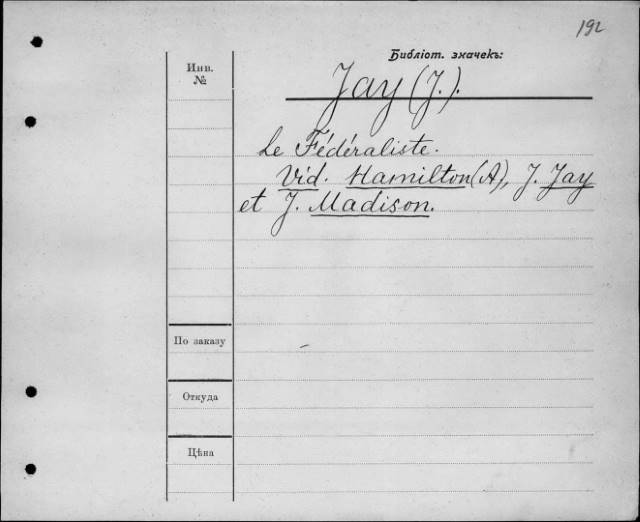 192
Библіот. значекъ:
Инв.
№
Jay (J.).
Le Fédéraliste.
Vid. Hamilton (A), J. Jay
et J. Madison.
По заказу
Откуда
Цѣна